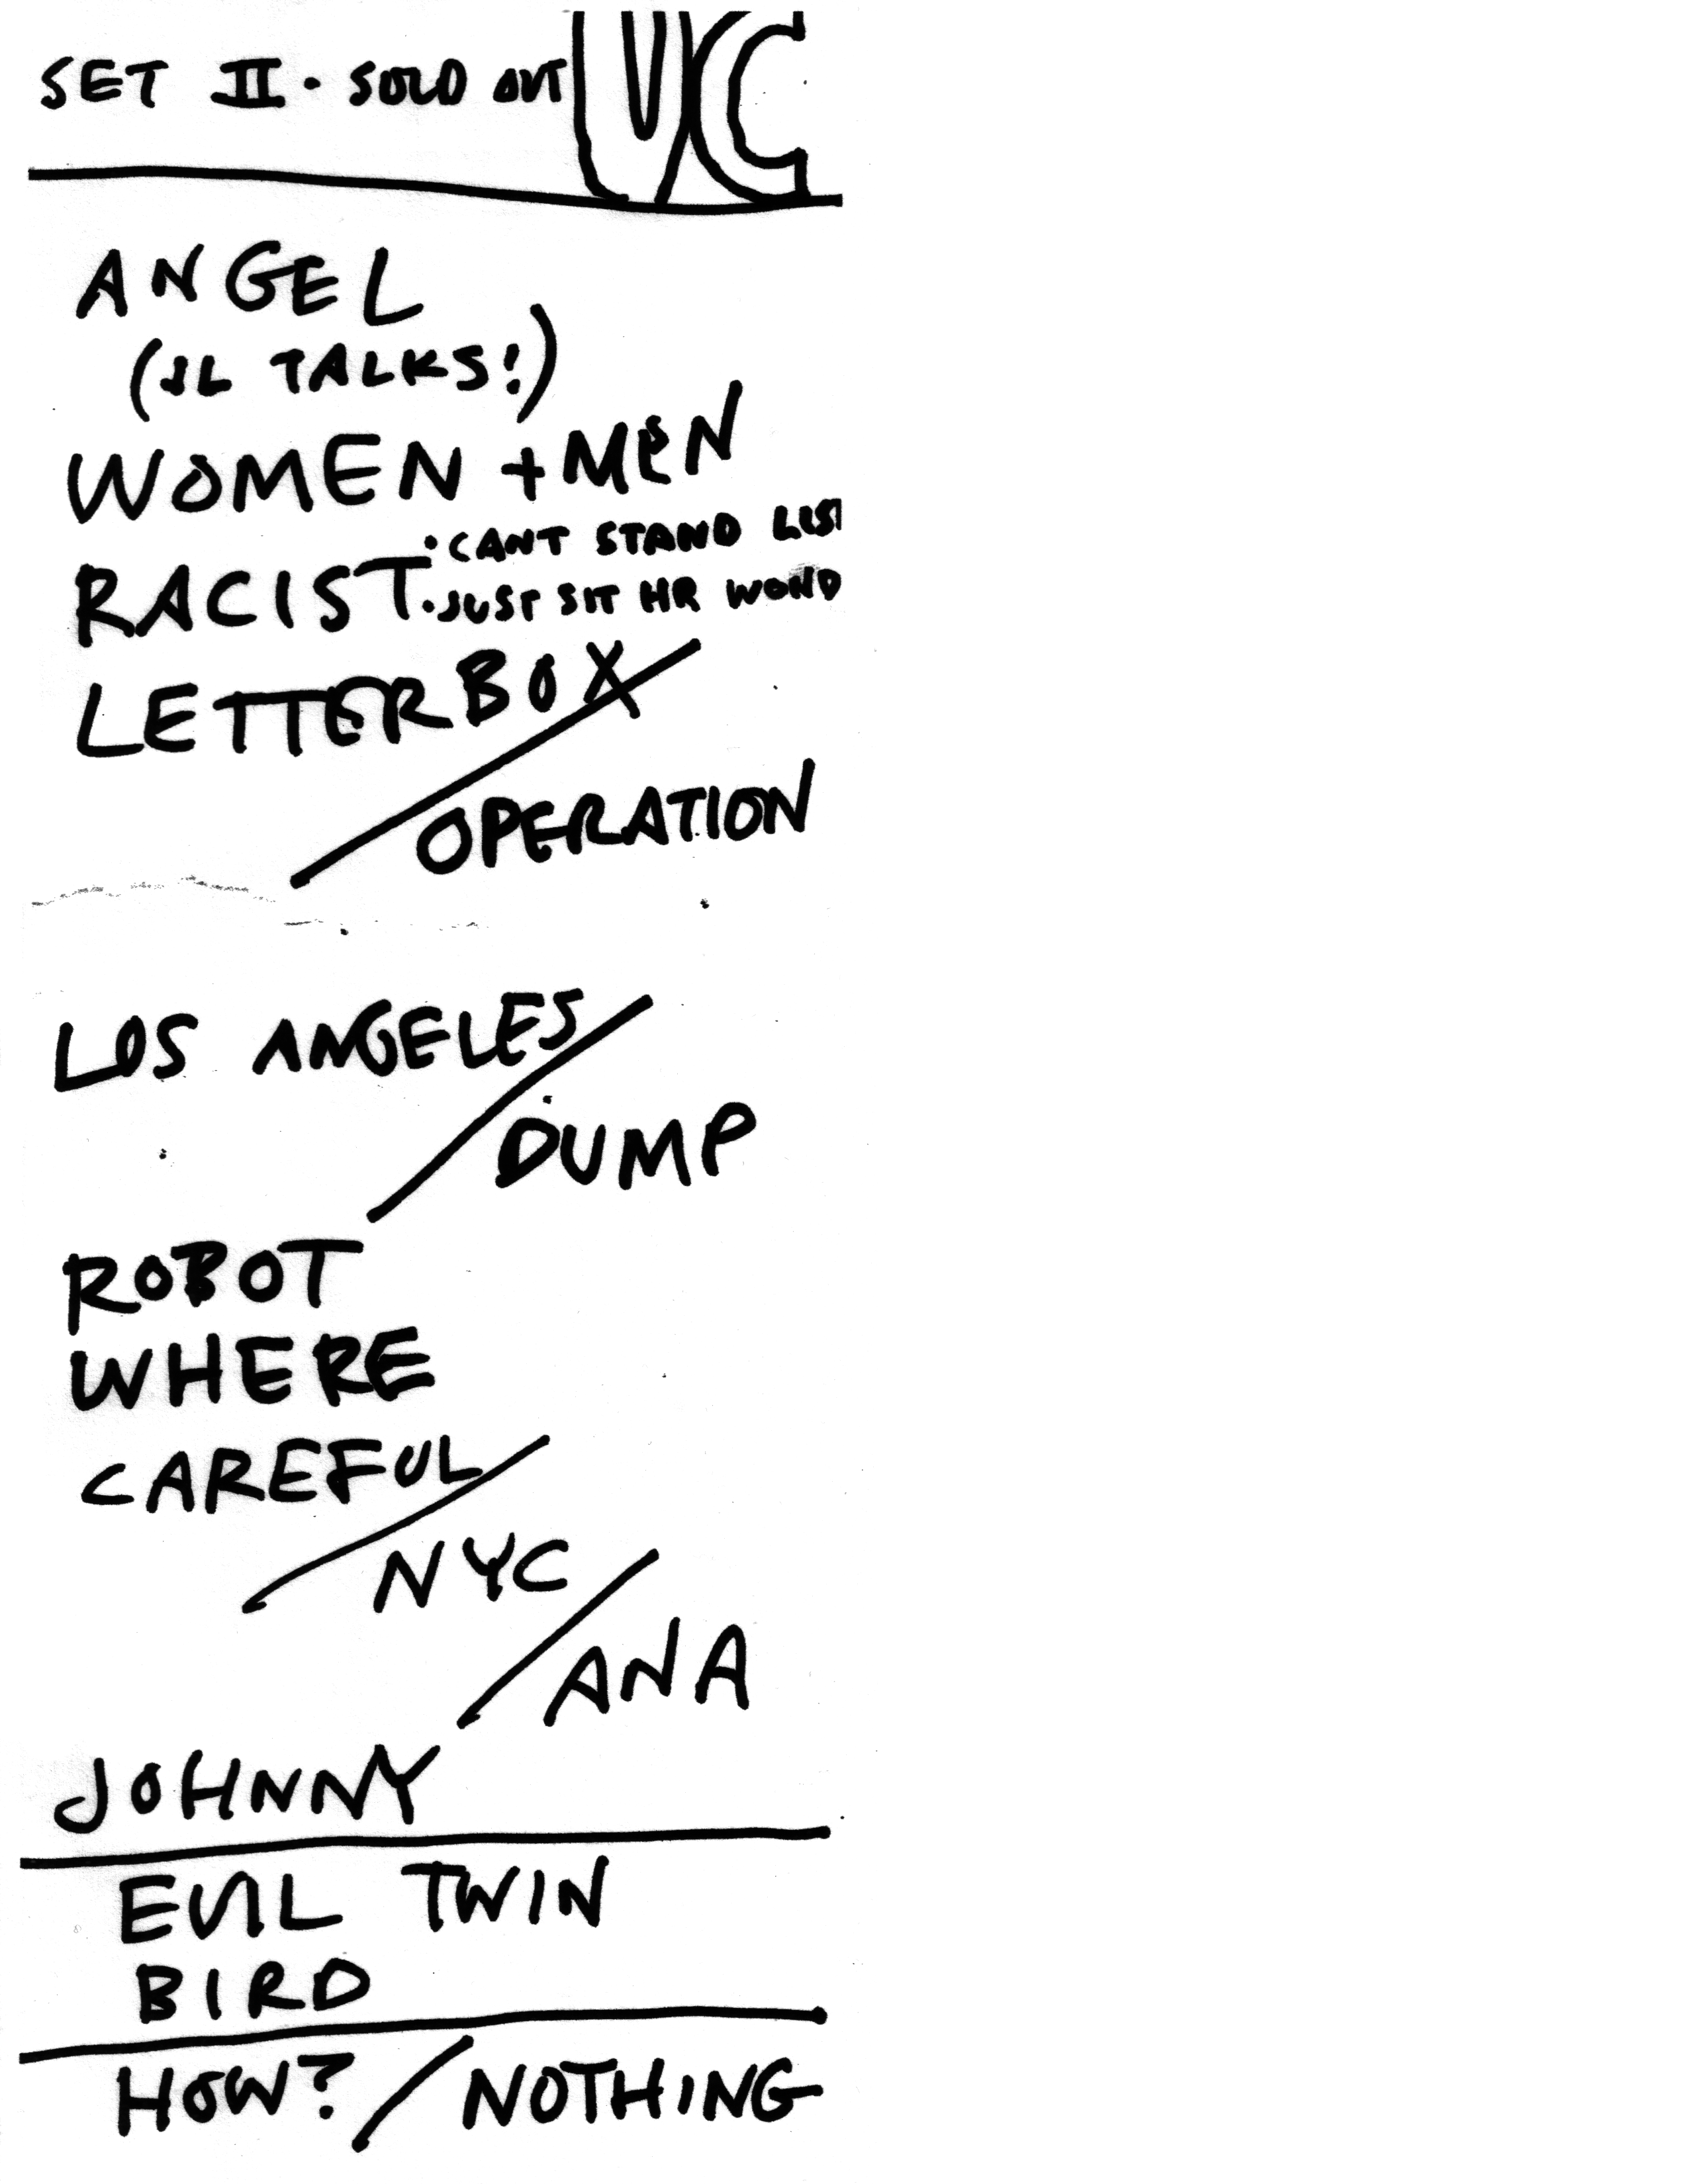 SET II · SOLD OUT UC
ANGEL
(JL TALKS!)
WOMEN + MEN
· CANT STAND
RACIST · JUST SIT HR WOND
LETTERBOX /
OPERATION
LOS ANGELES /
DUMP
ROBOT
WHERE
CAREFUL /
NYC /
ANA
JOHNNY
EVIL TWIN
BIRD
HOW? / NOTHING